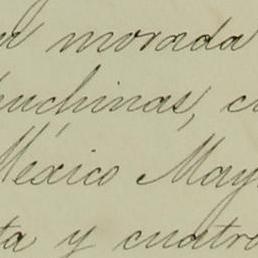 morada
chinas,
México May
ta y cuatro